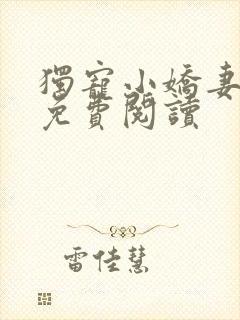 獨寵小嬌妻
免費閱讀
雷佳慧